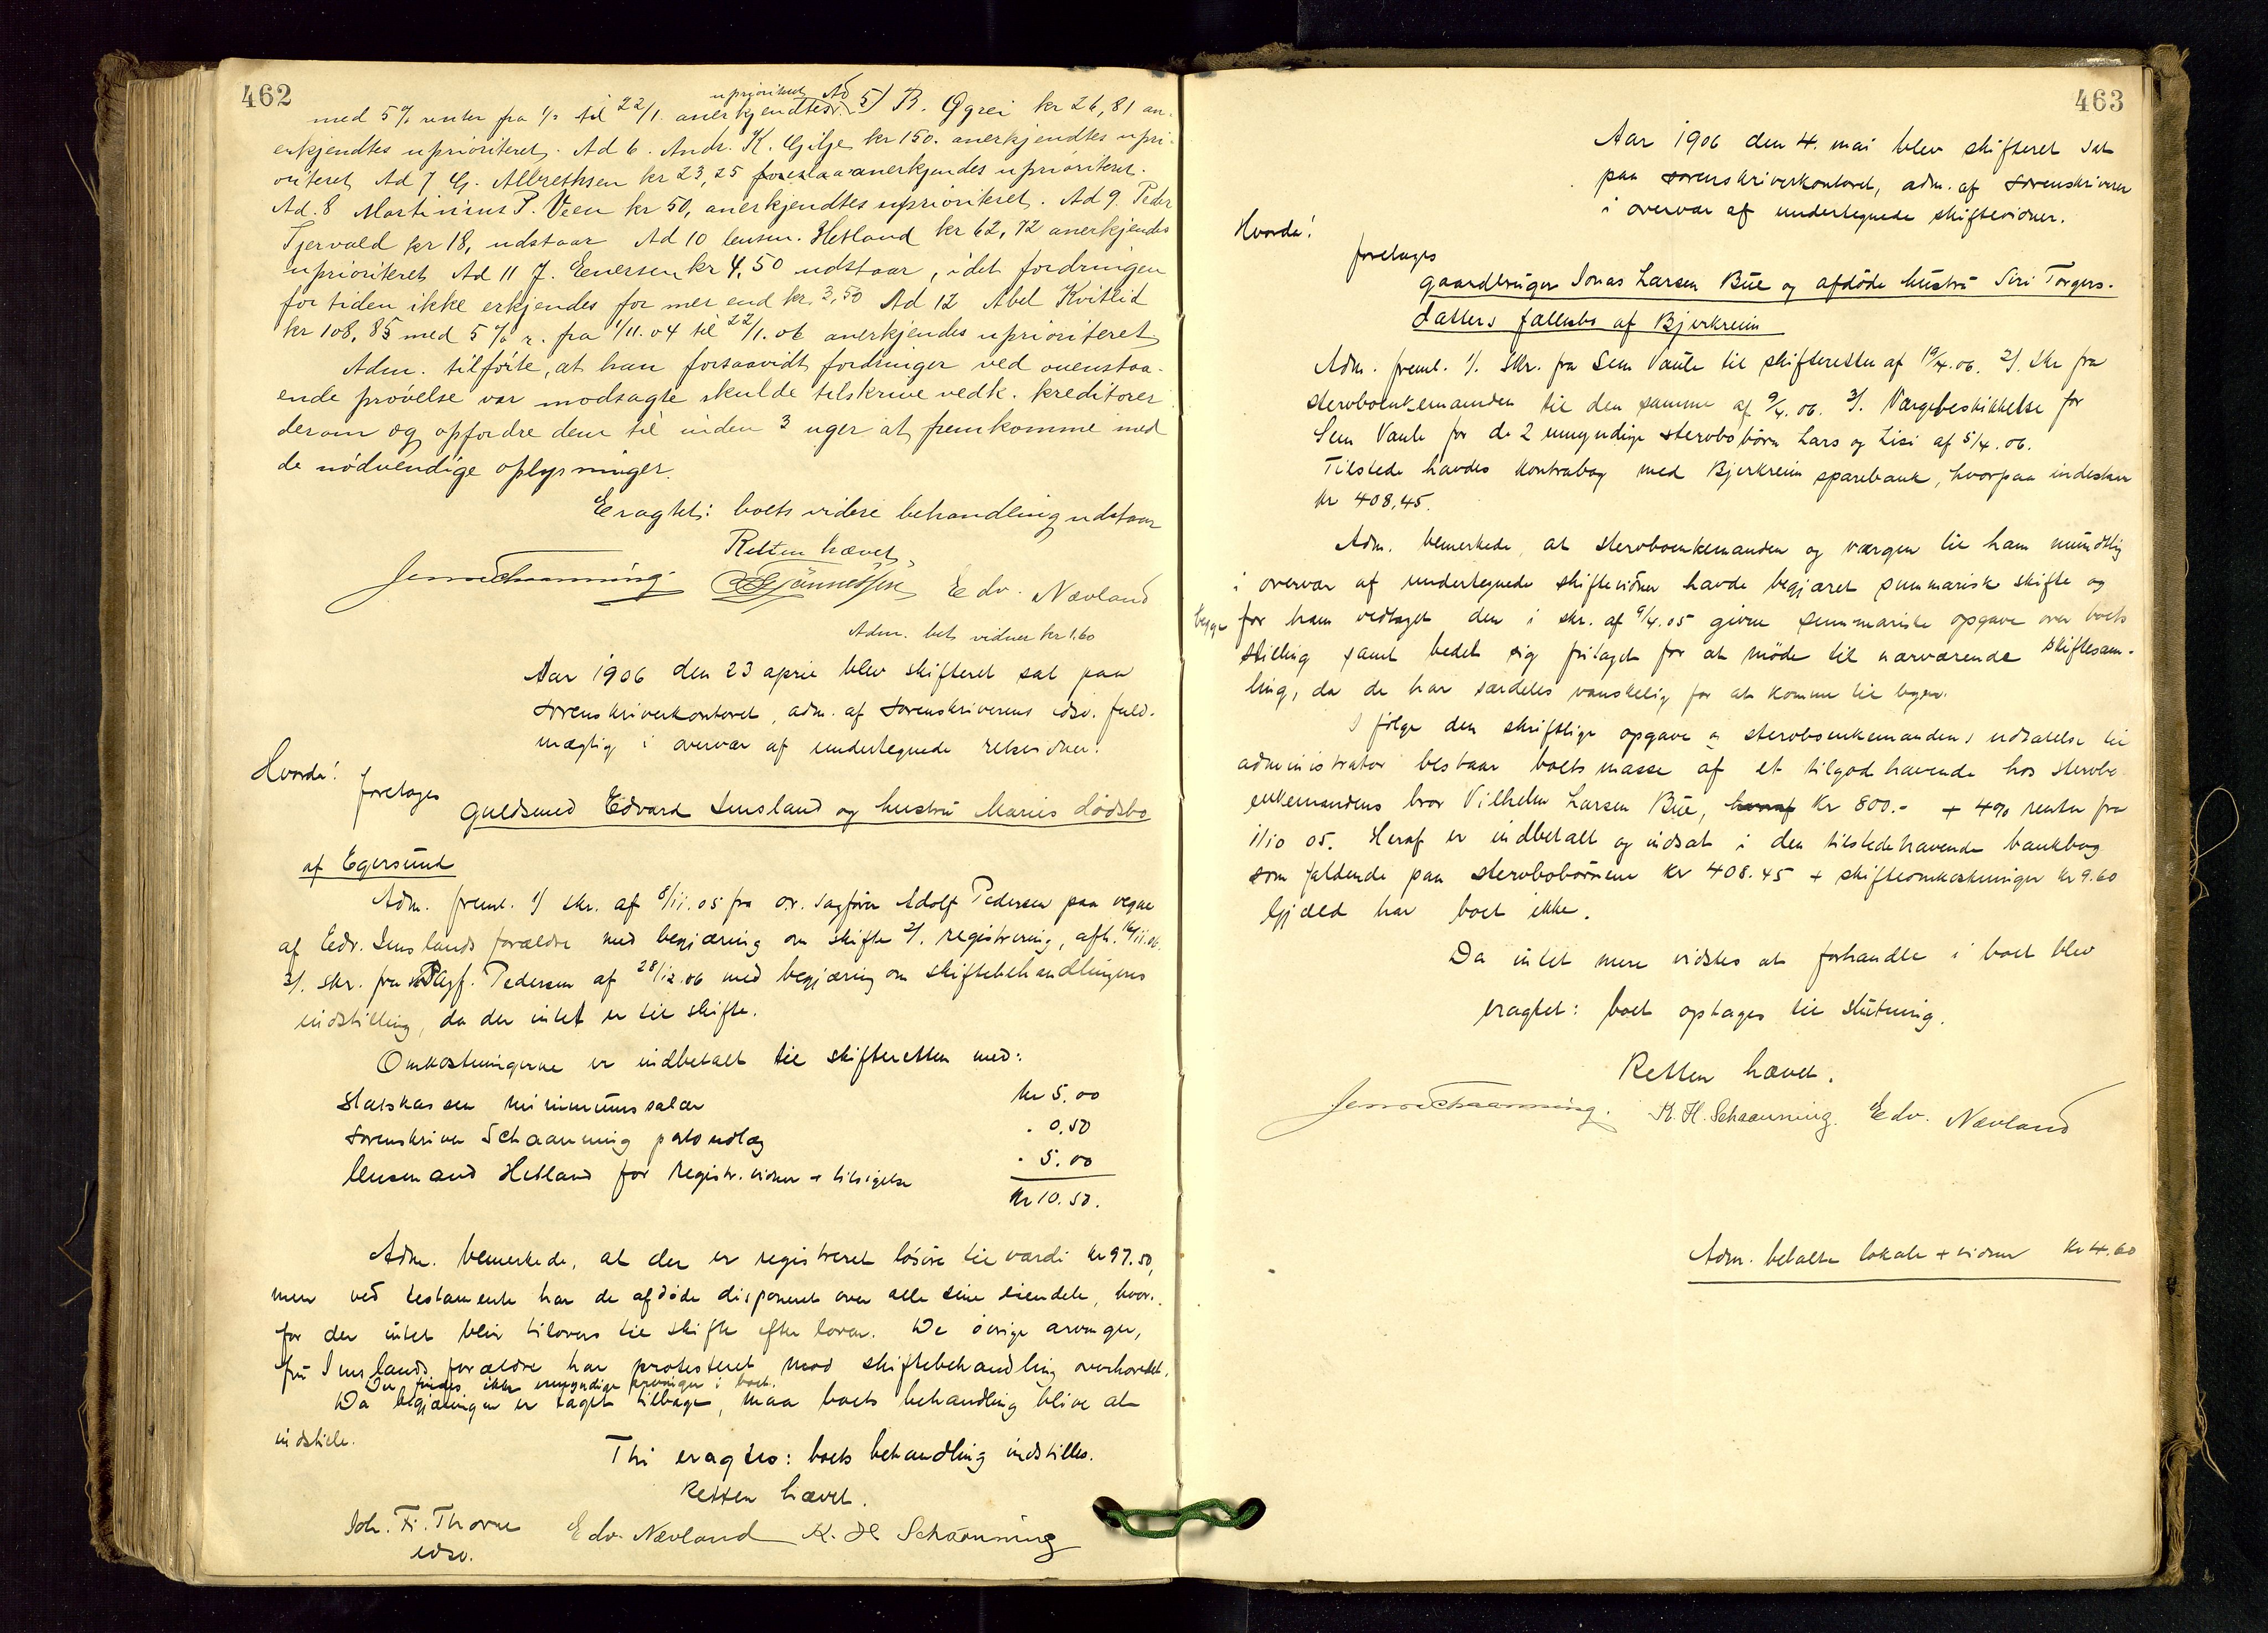 462
med 5 % renter fra 1/2 til 22/1. anerkjendtes uprioriteret Ad 5) B. Øgrei kr 26,81 an-
erkjendtes uprioriteret. Ad 6. Andr. K. Gilje kr 150. anerkjendtes upri-
oriteret Ad 7 G. Albrethsen kr 23,25 anerkjendes uprioriteret.
Ad. 8 Martinius P. Veen kr 50, anerkjendtes uprioriteret. Ad 9. Peder
Tjervold kr 18, udstaar Ad 10 lensm. Hetland kr 62,72 anerkjendes
uprioriteret Ad 11 J. Evensen kr 4,50 udstaar, idet fordringen
for tiden ikke erkjendes for mer end kr. 3,50 Ad 12 Abel Kvitlid
kr 108,85 med 5 % r. fra 1/11.04 til 22/1.06 anerkjendes uprioriteret
Adm. tilførte, at han forsaavidt fordringer ved ovenstaa-
ende prøvelse var modsagte skulde tilskrive vedk. kreditorer
derom og opfordre dem til inden 3 uger at fremkomme med
de nødvendige oplysninger.
Eragtet: boets videre behandling udstaar
Retten hævet,
Jens Schaanning Gjönnessen Edv. Nævland
Adm. bet. vidner kr 1.60
Aar 1906 den 23 april blev skifteret sat paa
sorenskriverkontoret, adm. af sorenskriverens edsv. fuld-
mægtig i overvær af undertegnede retsvidner.
Hvorda!
foretoges
guldsmed Edvard Imsland og hustru Maries dødsbo
af Egersund
Adm. freml. 1) skr. af 8/11.05 fra or. sagfører Adolf Pedersen paa vegne
af Edv. Imslands forældre med begjæring om skifte 2). registrering, afh. 16/11.06.
3). skr. fra sagf. Pedersen af 28/12.06 med begjæring om skiftebehandlingens
indstilling, da der intet er til skifte.
Omkostningerne er indbetalt til skifteretten med:
Statskassen minimumssalær kr 5.00
Sorenskriver Schaanning portoudlæg " 0.50
lensmand Hetland for registr. vidner + tilsigelse " 5.00
kr 10.50.
Adm. bemerkede, at der er registreret løsøre til værdi kr 97.50,
men ved testamente har de afdøde disponeret over alle sine eiendele, hvor-
for der intet blir tilovers til skifte efter loven. De øvrige arvinger,
fru Imslands forældre har protesteret mod skiftebehandling overhovedet.
Der findes ikke umyndige arvinger i boet.
Da begjæringen er taget tilbage, maa boets behandling blive at
indstille.
Thi eragtes: boets behandling indstilles.
Retten hævet.
Joh. Fr. Thorne Edv. Nævland K. H Schaanning
edsv.
463
Aar 1906 den 4. mai blev skifteret sat
paa sorenskriverkontoret, adm. af sorenskriveren
i overvær af undertegnede skiftevidner.
Hvorda!
foretoges
gaardbruger Jonas Larsen Bue og afdøde hustru Siri Torgers-
datters fællesbo af Bjerkreim
Adm. freml. 1). Skr. fra Sem Vaule til skifteretten af 19/4.06. 2). skr fra
sterboenkemanden til den samme af 9/4.06. 3). Værgebeskikkelse for
Sem Vaule for de 2 umyndige sterbobørn Lars og Lisi af 5/4.06.
Tilstede havdes kontrabog med Bjerkreim sparebank, hvorpaa indestaar
kr 408.45.
Adm. bemerkede, at sterboenkemanden og værgen til ham mundtlig
i overvær af undertegnede skiftevidner havde begjæret summarisk skifte og
begge for ham vedtaget den i skr. af 9/4.05 givne summariske opgave over boets
stilling samt bedet sig fritaget for at møde til nærværende skiftesam-
ling, da de har særdeles vanskelig for at komme til byen.
I følge den skriftlige opgave og sterboenkemandens udtalelse til
administrator bestaar boets masse af et tilgodehavende hos sterbo-
enkemandens bror Vilhelm Larsen Bue, hvoraf kr 800.- + 4% renter fra
1/10 05. Heraf er indbetalt og indsat i den tilstedehavende bankbog
som faldende paa sterbobørnene kr 408.45 + skifteomkostninger kr 9.60
Gjæld har boet ikke.
Da intet mere vidstes at forhandle i boet blev
eragtet: boet optages til slutning.
Retten hævet.
Jens Schaanning. K. H. Schaanning. Edv. Nævland
Adm. betalte lokale + vidner kr 4.60